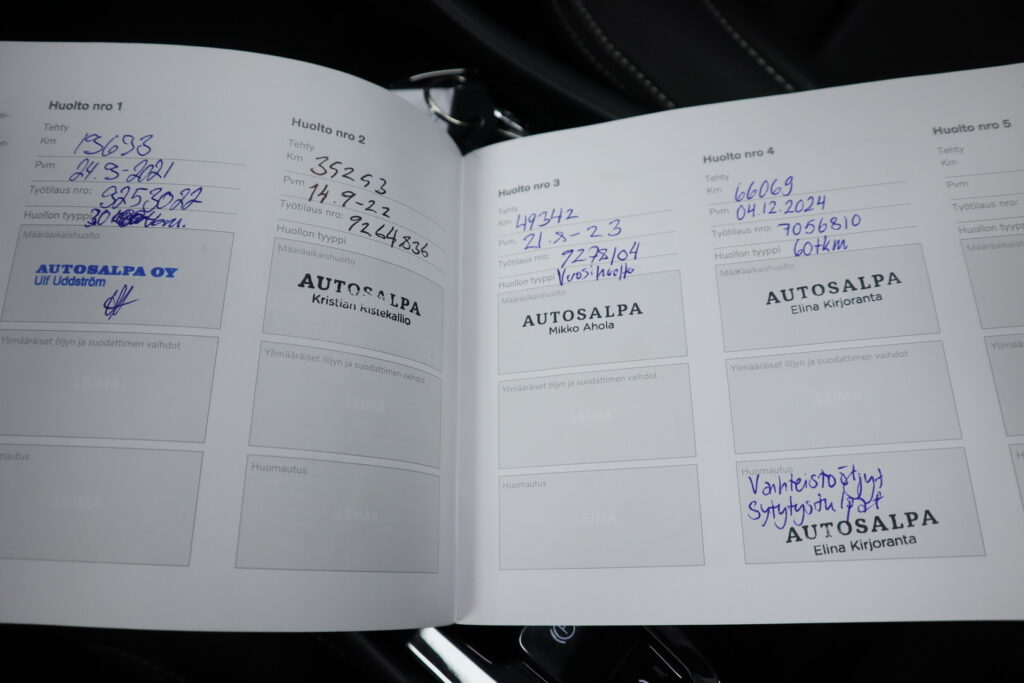 Huolto nro 1
Tehty
Km 19693
Pvm 24.9-2021
Työtilaus nro: 9253022
Huollon tyyppi
Määräaikaishuolto
AUTOSALPA OY
Ulf Uddström
Ylimääräiset öljyn ja suodattimen vaihdot
LEIMA
LEIMA
Huolto nro 2
Tehty
Km 35253
Pvm 14.9-22
Työtilaus nro: 9264836
Huollon tyyppi
Määräaikaishuolto
AUTOSALPA
Kristian Ristekallio
Ylimääräiset öljyn ja suodattimen vaihdot
LEIMA
Huomautus
LEIMA
Huolto nro 3
Tehty
Km 49342
Pvm 21.8-23
Työtilaus nro: 9278104
Huollon tyyppi Vuosihuolto
Määräaikaishuolto
AUTOSALPA
Mikko Ahola
Ylimääräiset öljyn ja suodattimen vaihdot
LEIMA
Huomautus
LEIMA
Huolto nro 4
Tehty
Km 66069
Pvm 04.12.2024
Työtilaus nro: 7056810
Huollon tyyppi 60tkm
Määräaikaishuolto
AUTOSALPA
Elina Kirjoranta
Ylimääräiset öljyn ja suodattimen vaihdot
LEIMA
Huomautus
Vaihteistoöljyt
Sytytystulpat
AUTOSALPA
Elina Kirjoranta
Huolto nro 5
Tehty
Km
Pvm
Työtilaus nro: